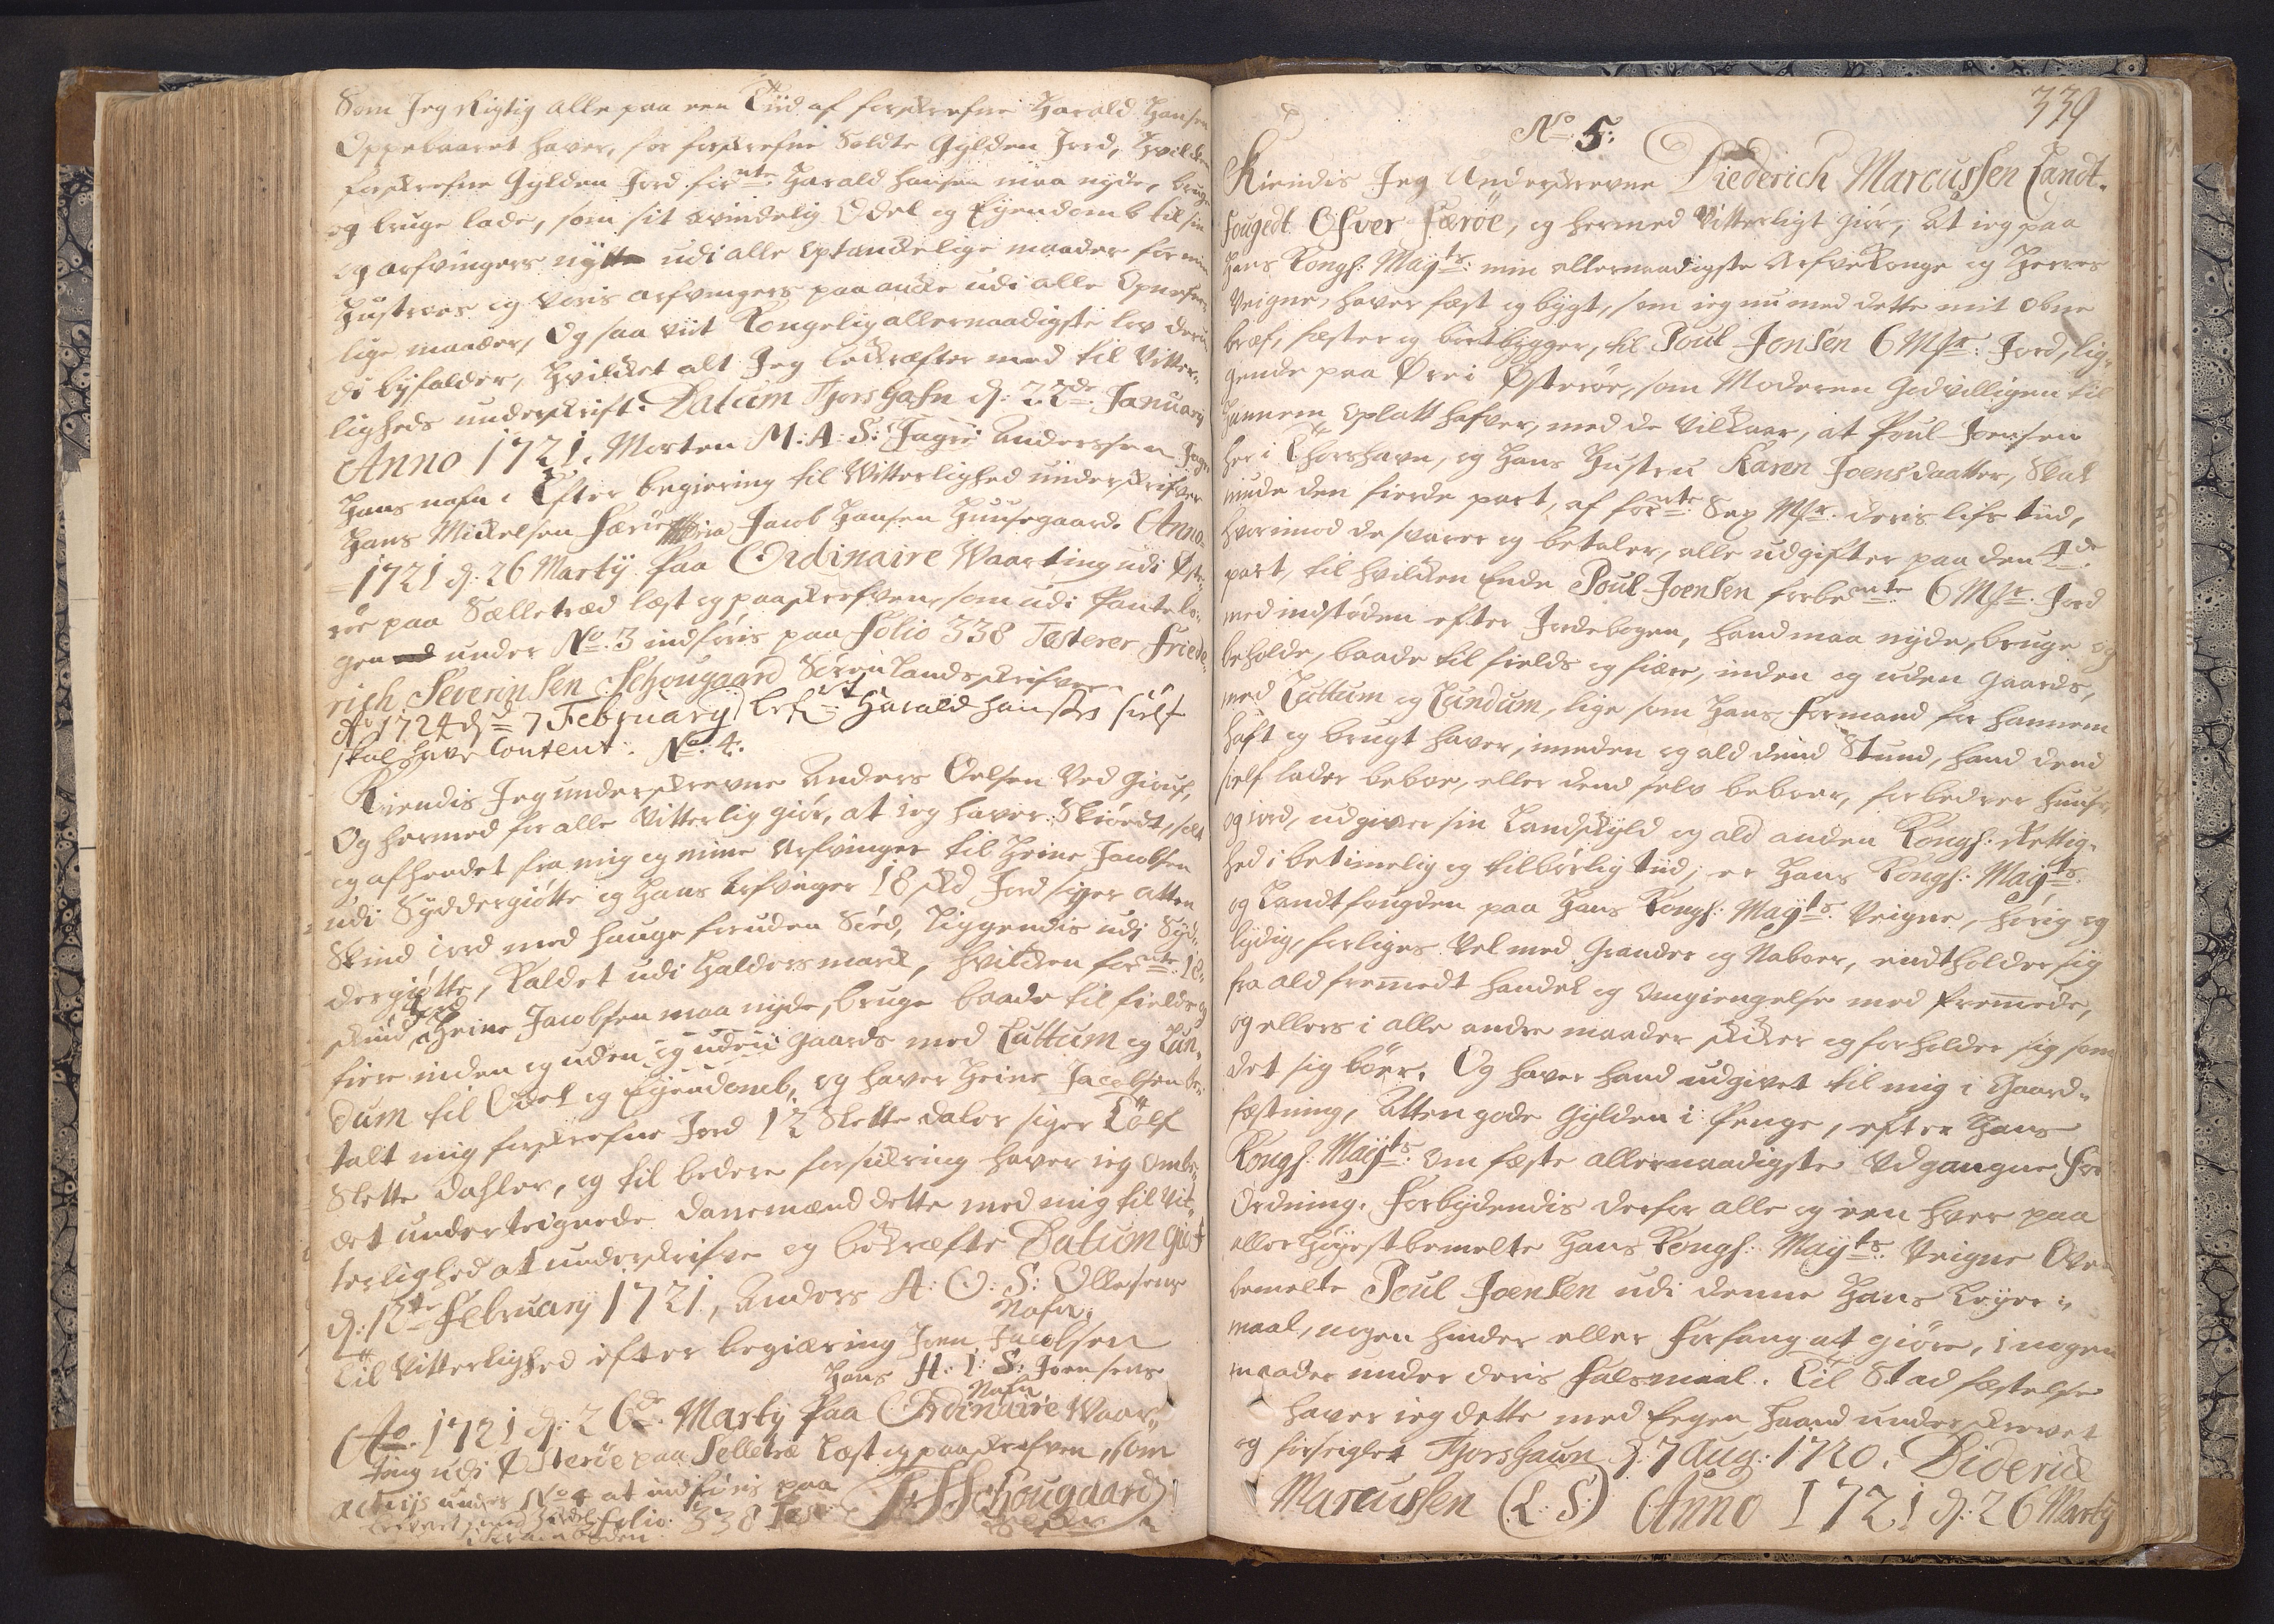 Som Jeg Rigtig alle paa een Tiid af forskrefne Harald Hansen
Oppebaaret haver, for forskrefne Soldte Gylden Jord, Hvilken
forskrefne Gylden Jord for^nte Harald Hansen maa nyde, bruge
og bruge lade, som sit vindelig Odel og Eyendomb til sin
og arfvingers nytte udi alle optænckelige maader for min
Hustrues og voris arfvingers paa ancke udi alle
lige maader, Og saa viit Kongelig allernaadigste lov der
di byfalder, Hvilcket alt Jeg bekræfter med til Vitter-
ligheds underskrift. Datum Thorshafn d: 22^de January
Anno 1721. Morten M: A: S: Fagri Anderssen
Hans nafn. Efter begiering til Vitterlighed underskrifver
Hans Mickelsen Færøe Jacob Hansen Huusegaard. Anno
1721 d. 26 Marty Paa Ordinaire Waarting udi Øste-
røe paa Sælletræd læst og paaskrefven, som udi Pantebo-
gen under No. 3 indføris paa Folio 338 Testerer Friede-
rich Severinsen Schougaard Soren Landskrifver
Ao 1724 d. 7 February Harald Hansen self
skal have Content. No. 4:
Kiendis Jeg underskrevne Anders Oelsen Ved Gieuf,
Og hermed for alle Vitterlig giør, at ieg haver Skiøedt, solt
og afhendet fra mig og mine Arfvinger til Heine Jacobsen
udi Syddergiøtte og Hans Arfvinger 18 skd Jord siger atten
Skind iord med hauge foruden Sæd, Liggendis udi Syd-
dergiøtte, Kaldet udi Halders marck, hvilcken for^nte 18
skind Jord Heine Jacobsen maa nyde, bruge baade til fields og
fiere inden og uden og uden gaards med Luttum og Lun-
dum til Odel og Eyendomb, og haver Heine Jacobsen be-
talt mig forskrefne Jord 12 Slette daler siger Tolf
Slette Dahler, og til bedere forsickring haver ieg ombe-
det undertegnede Dannemænd dette med mig til Vit-
terlighed at underskrifve og bekræfte Datum Giøf
d: 12^te February 1721, Anders A: O: S: Ollesens
Nafn,
Til Vitterlighed efter begiæring Joen Jacobsen
Hans H: I: S: Joensens
Nafn,
Ao. 1721 d: 26^de Marty Paa Ordinaire Waar-
ting udi Østerøe paa Selletræ Læst og paaskrefven, som
actiys under No 4 at indføris paa
Folio 338 Test: F: S: Schougaard
339
No 5:
Kiendis Jeg Underskrevne Diederich Marcussen Landt-
fougedt Ofver Færøe, og hermed Vitterligt giør, at ieg paa
Hans Kongl: May^ts: min allernaadigste ArfveKonge og Herres
Veigne, haver fæst og bygt, som ieg nu med dette mit obne
bref, fæster og bortbygger, til Poul Jonsen 6 Mk Jord, lig-
gende paa Øre i Østerøe, som Moderen Godvilligen til
hannem oplatt hafver, med de Vilkaar, at Poul Joensen
her i Thorshavn, og Hans Hustru Karen Joensdaatter, Skal
niude den fierde part, af for^nte Sex Mk. deris lifs tiid,
hvorimod de svarer og betaler, alle udgifter paa den 4^de
part, til hvilcken Ende Poul Joensen forbe^mte 6 Mk. Jord
med indstøden efter Jordebogen, hand maa nyde, bruge og
beholde, baade til fields og fiære, inden og uden gaards,
med Luttum og Lundum, lige som Hans Formand for hannem
haft og brugt haver, imeden og ald dend Stund, hand dend
self lader beboe, eller dend selv beboer, forbedrer huuse,
og iord, udgiver sin Landskyld og ald anden Kongl: Rettig-
hed i betimelig og tilbørlig tiid; er Hans Kongl: May^ts
og Landtfougden paa Hans Kongl: May^ts Veigne, hørig og
lydig, forliges Vel med Grander og Naboer, endtholder sig
fra ald fremmedt handel og omgiengelse med fremmede,
og ellers i alle andre maader skicker og forholder sig som
det sig bør. Og haver hand udgivet til mig i Gaard-
fæstning, Atten gode Gylden i Penge, efter Hans
Kongl: May^ts om fæste allernaadigste Udgangne For-
Ordning. Forbydendis derfor alle og een hver paa
aller Høyestbemelte Hans Kongl: May^ts Veigne Oven-
bemelte Poul Joensen udi denne Hans Leyer-
maal, nogen hinder eller Forfang at giøre, i nogen
maader under deris Falsmaal. Til Stadfæstelse
haver ieg dette med Eegen Haand underskrevet
og forseiglet Thorshavn d. 7 Aug: 1720. Diderick
Marcussen (L: S:) Anno 1721 d: 26 Marty